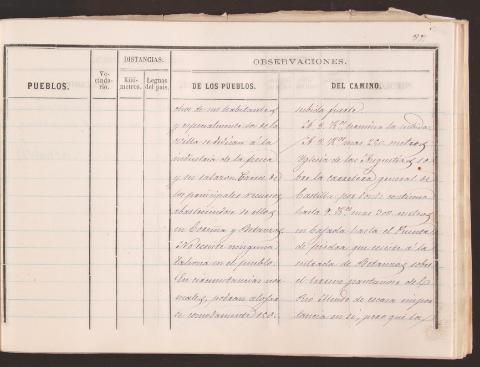 PUEBLOS.
Vecindario.
DISTANCIAS.
Kilómetros.
Leguas del país.
OBSERVACIONES.
DE LOS PUEBLOS.
DEL CAMINO.
habitantes
y especialmente los de la
Villa se dedican á la
industria de la pesca
y su salazon.
los principales recursos
en Coruña y Betanzos.
No existe ninguna
en el pueblo.
En circunstancias nor-
males, podran alojar-
se comodamente 150.
subida fuerte.
A 2 Kms termina la subida.
A 2 Kms mas 200 metros
Iglesia de las Angustias so-
bre la carretera general de
Castilla por donde continua
hasta 9 Kms mas 300 metros
en bajada hasta el Puente
de piedra que existe á la
entrada de Betanzos sobre
el terreno pantanoso del
Rio Mendo de escasa impor-
tancia en si, pero que la